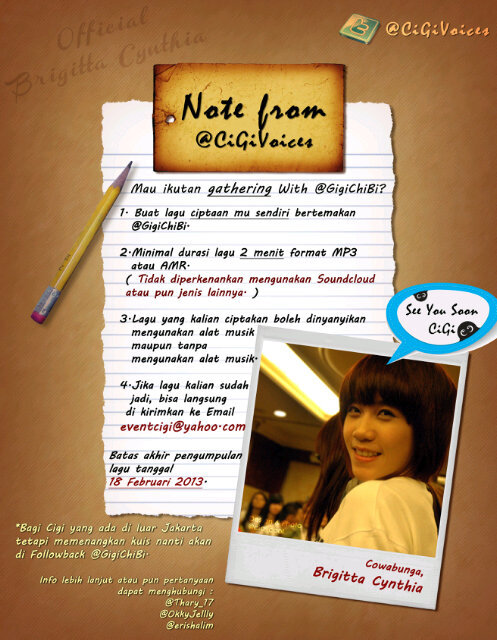 Official
Brigitta Cynthia
@CiGiVoices
Note from
@CiGiVoices
Mau ikutan gathering With @GigiChiBi?
1. Buat lagu ciptaan mu sendiri bertemakan
@GigiChiBi.
2.Minimal durasi lagu 2 menit format MP3
atau AMR.
( Tidak diperkenankan mengunakan Soundcloud
atau pun jenis lainnya. )
3.Lagu yang kalian ciptakan boleh dinyanyikan
mengunakan alat musik
maupun tanpa
mengunakan alat musik.
4.Jika lagu kalian sudah
jadi, bisa langsung
di kirimkan ke Email
eventcigi@yahoo.com
Batas akhir pengumpulan
lagu tanggal
18 Februari 2013.
See You Soon
CiGi
Cowabunga,
Brigitta Cynthia
*Bagi Cigi yang ada di luar Jakarta
tetapi memenangkan kuis nanti akan
di Followback @GigiChiBi.
Info lebih lanjut atau pun pertanyaan
dapat menghubungi :
@Thary_17
@OkkyJellly
@erishalim